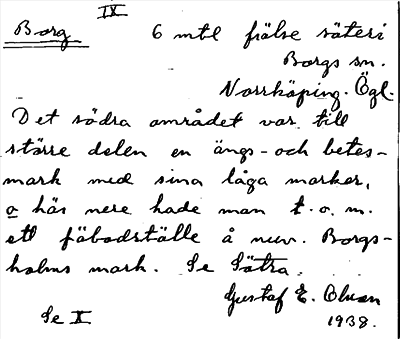 IX
Borg 6 mtl frälse säteri
Borgs sn.
Norrköping. Ögl.
Det södra området var till
större delen en ängs- och betes-
mark med sina låga marker,
o här nere hade man t. o. m.
ett fäbodställe å nuv. Borgs-
holms mark. Se Sätra.
Gustaf E. Olsson
1938.
Se X